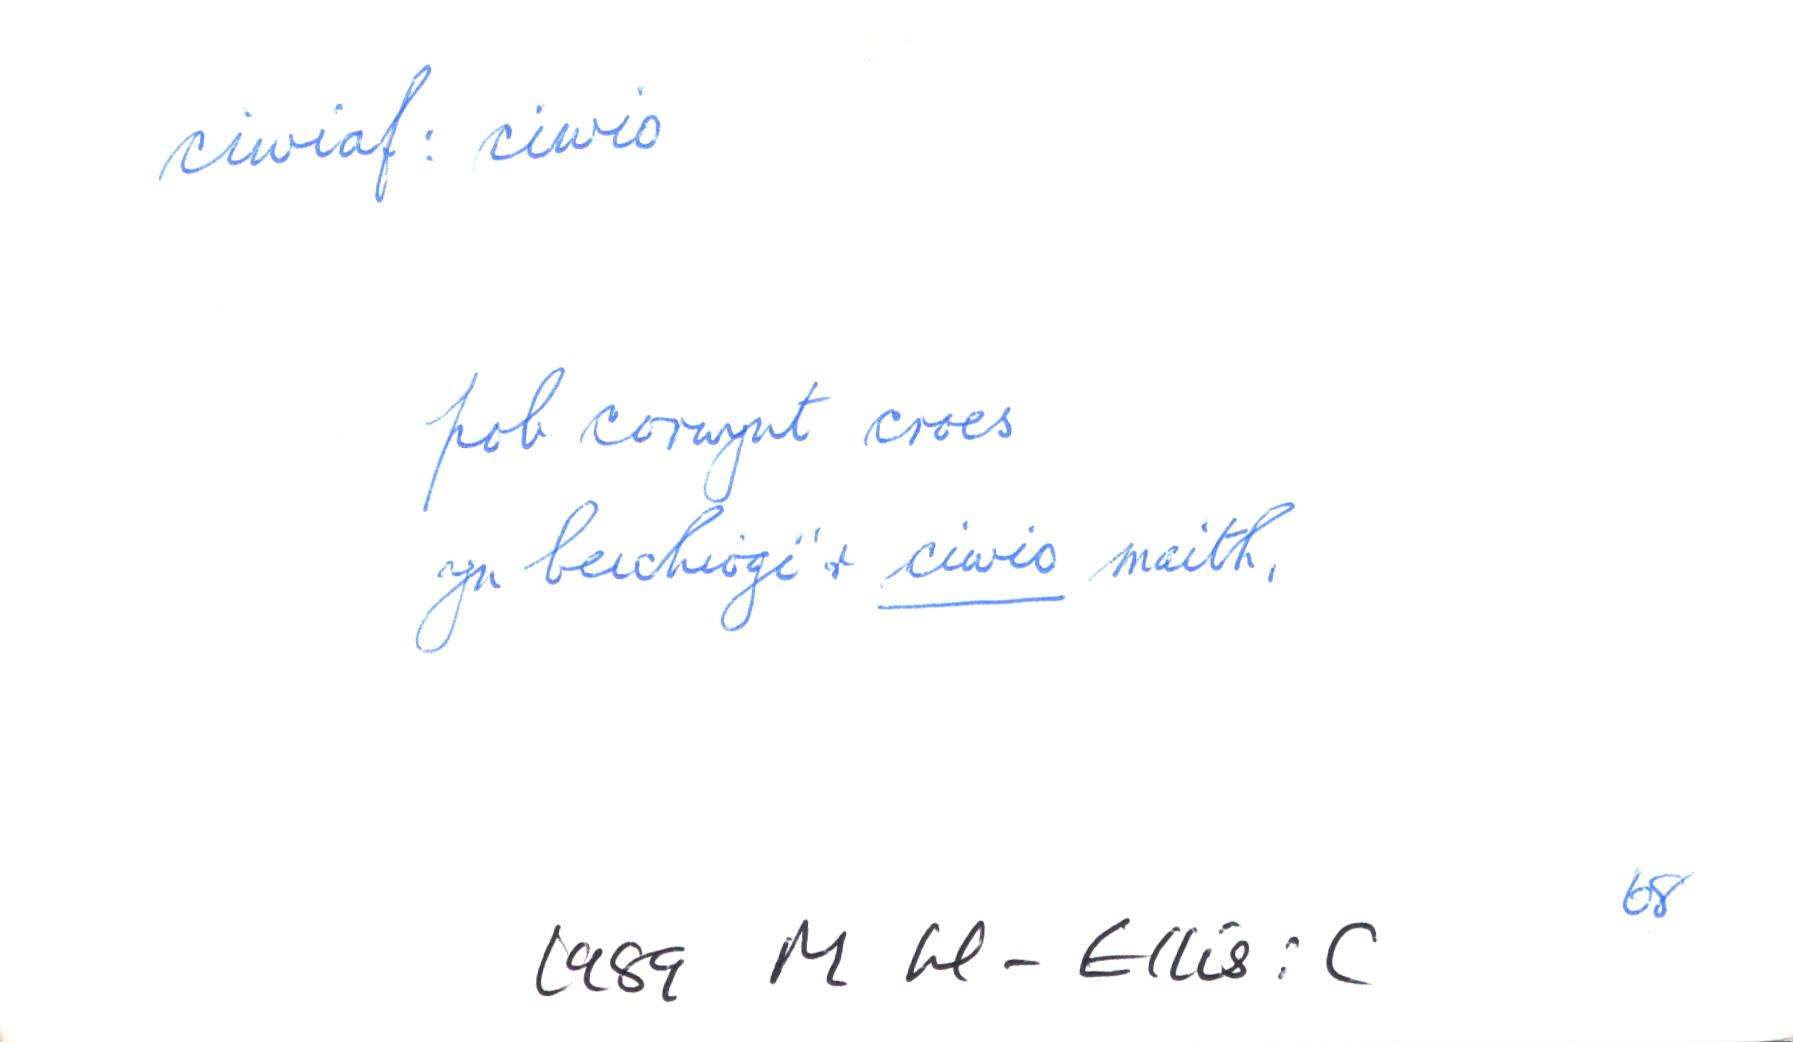 ciwiaf: ciwio
pob corwynt croes
yn beichiogi" + ciwio maith,
68
1989 M Ll - Ellis: C